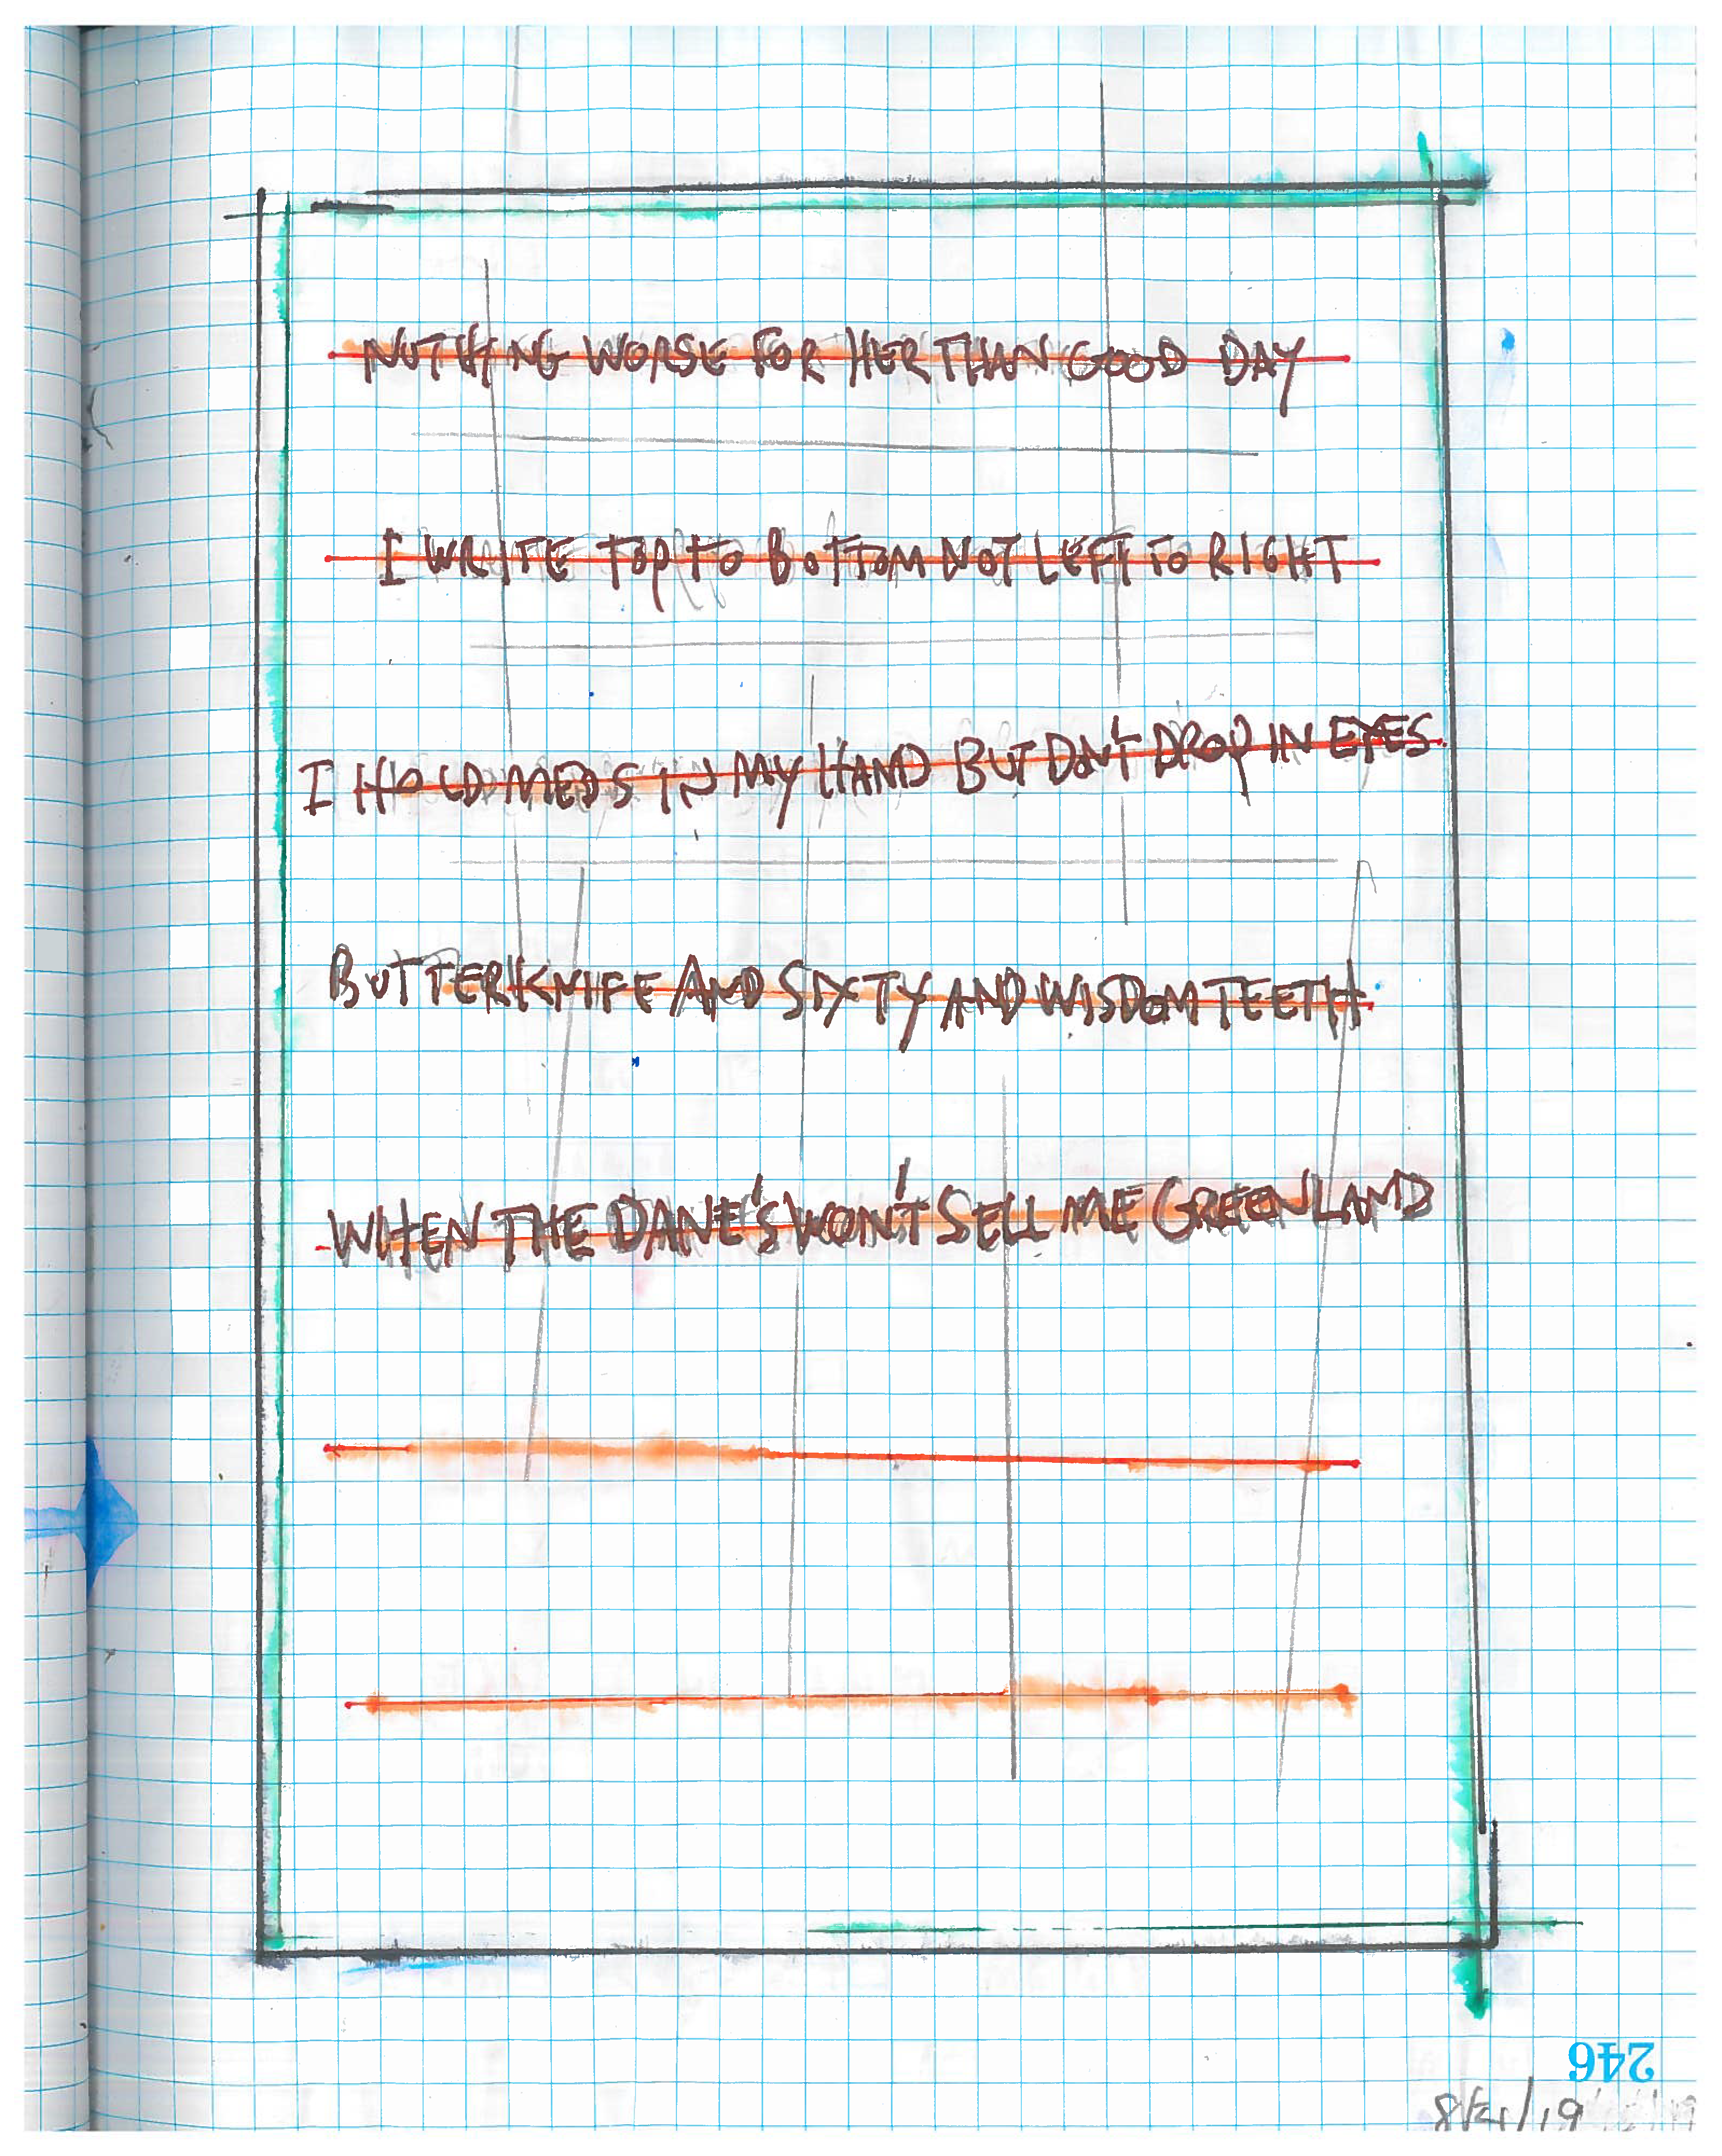 NOTHING WORSE FOR HER THAN GOOD DAY
I WRITE TOP TO BOTTOM NOT LEFT TO RIGHT
I HOLD MEDS IN MY HAND BUT DON'T DROP IN EYES
BUTTERKNIFE AND SIXTY AND WISDOM TEETH
WHEN THE DANE'S WON'T SELL ME GREENLAND
246
8/21/19